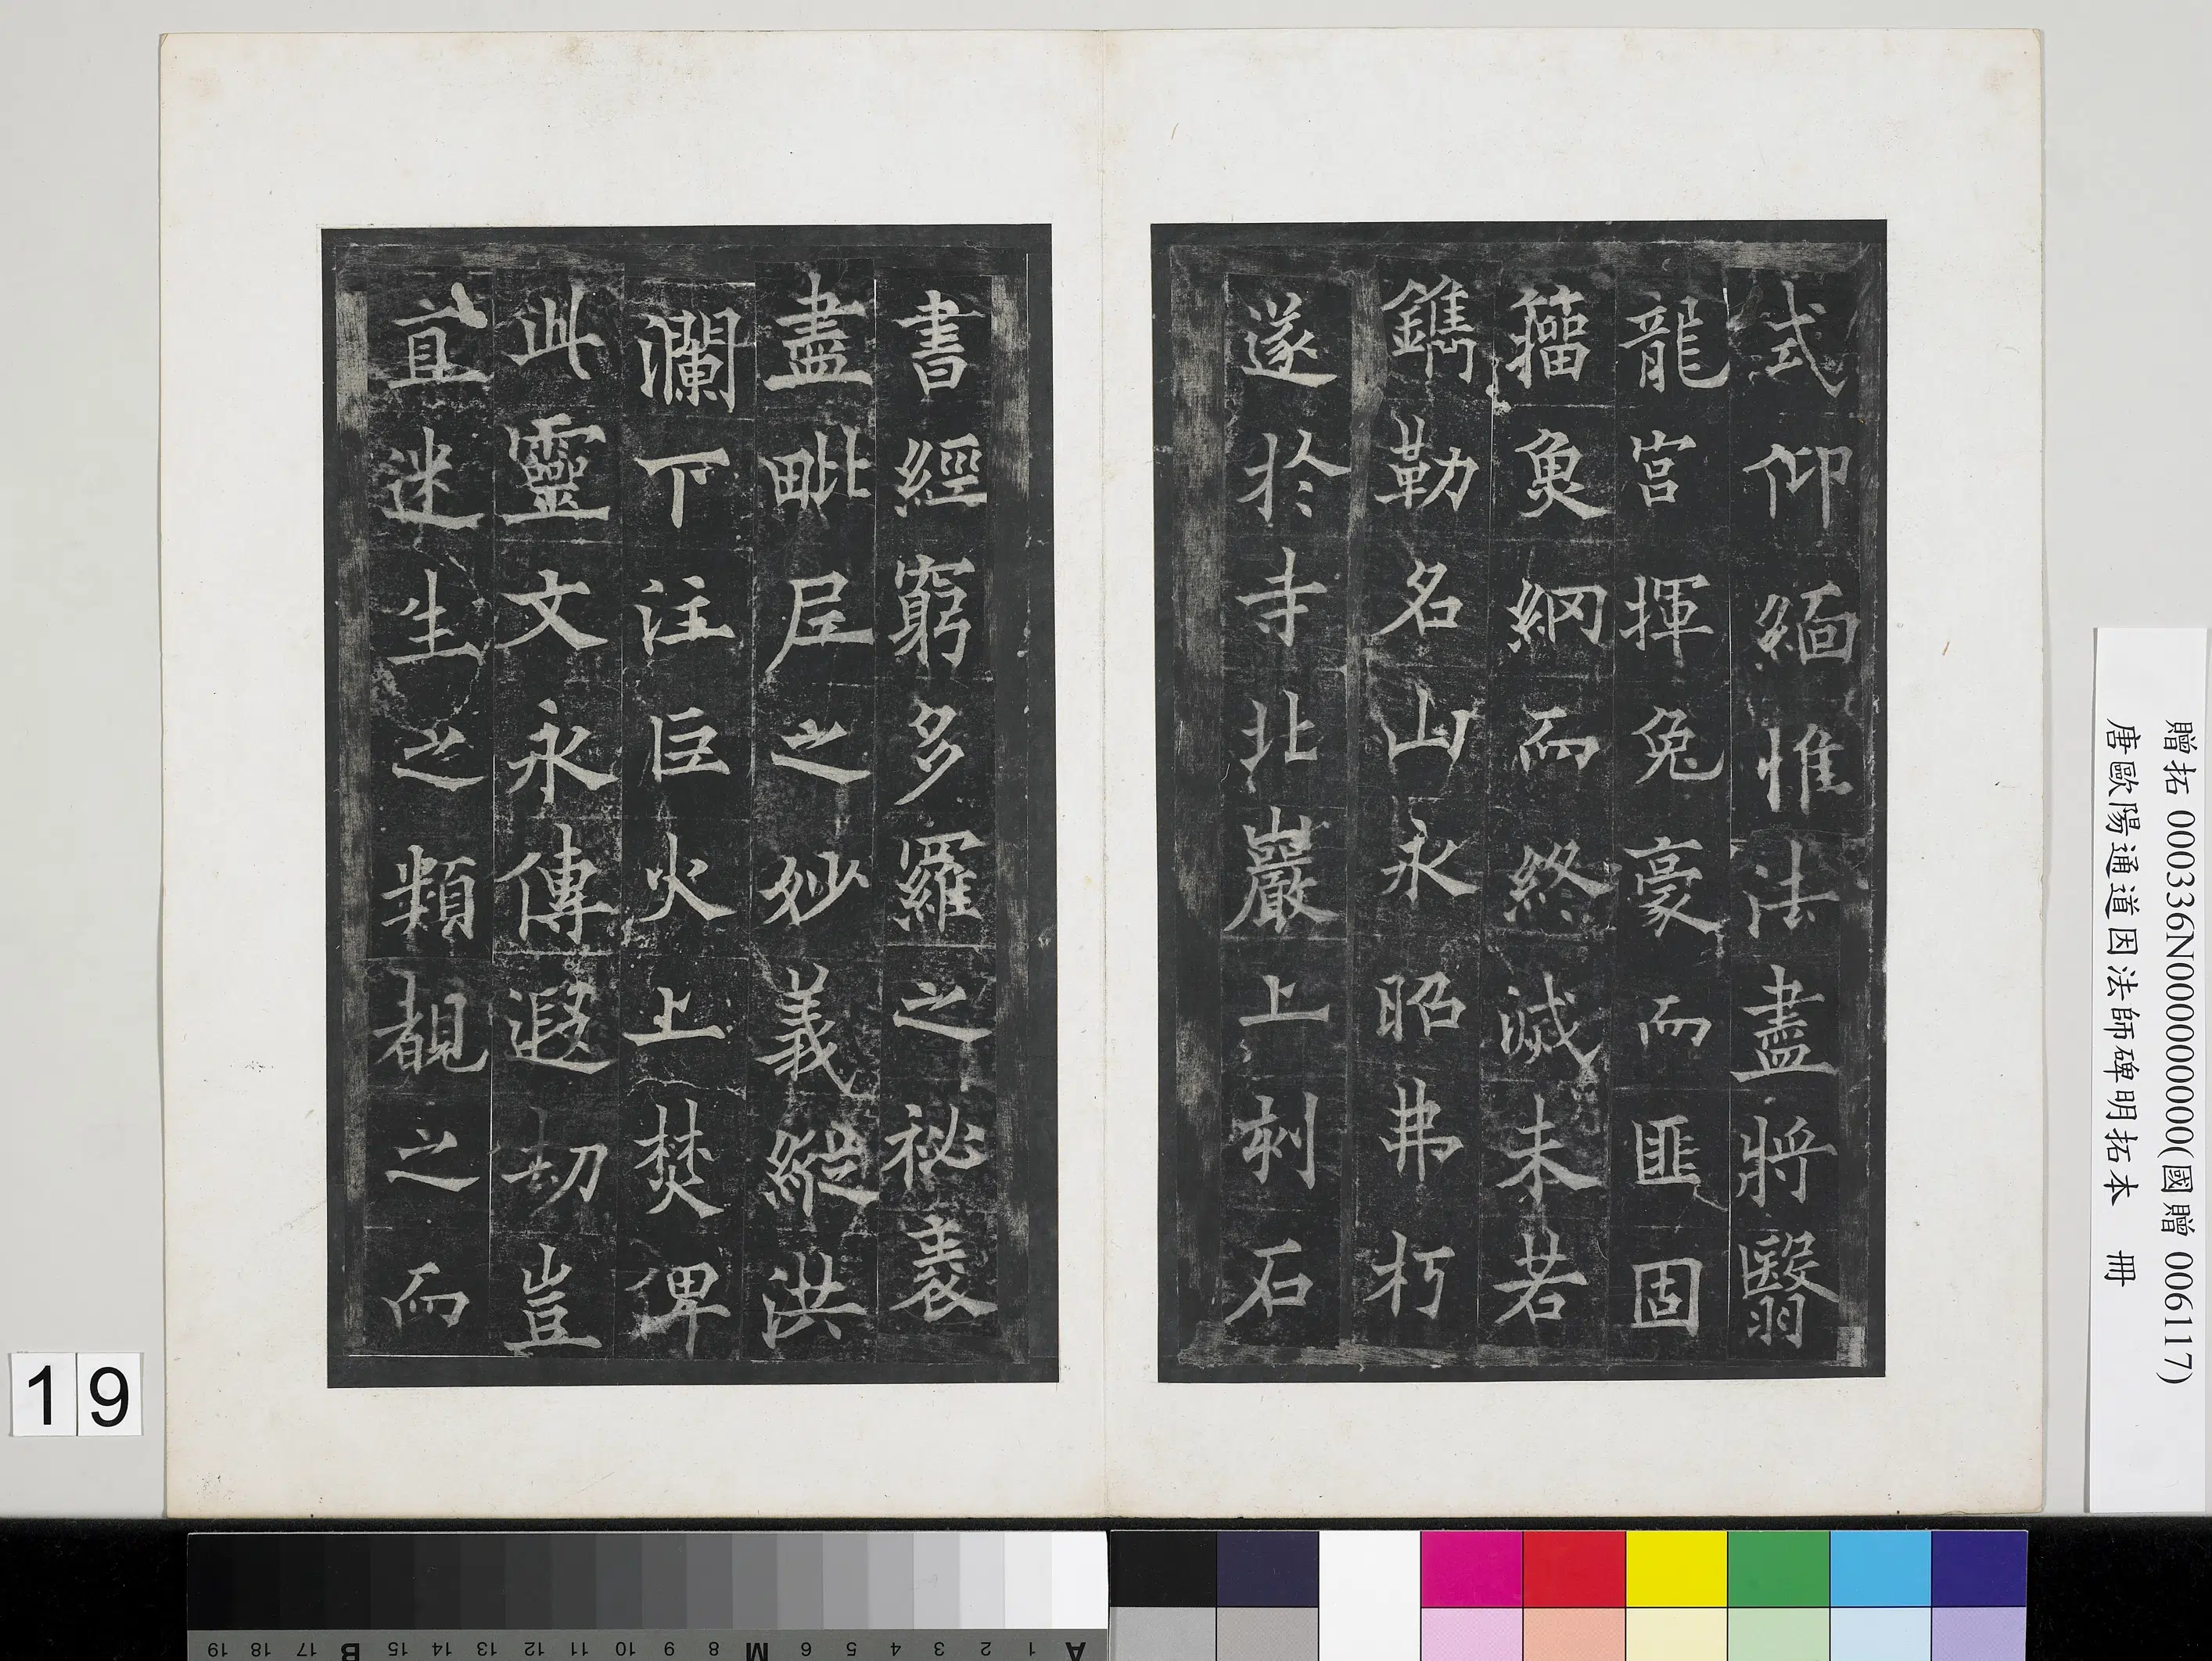 式仰緬惟法盡將翳
龍宮揮兔豪而匪固
籀魚網而終滅未若
鐫勒名山永昭弗朽
遂於寺北巖上刻石
書經窮多羅之祕裏
盡毗尼之妙義縱洪
瀾下注巨火上焚俾
此靈文永傳遐劫豈
直迷生之類覩之而
贈拓 000336N000000000(國贈 006117)
唐歐陽通道因法師碑明拓本 冊
19
A 1 2 3 4 5 6 M 8 9 10 11 12 13 14 15 B 17 18 19